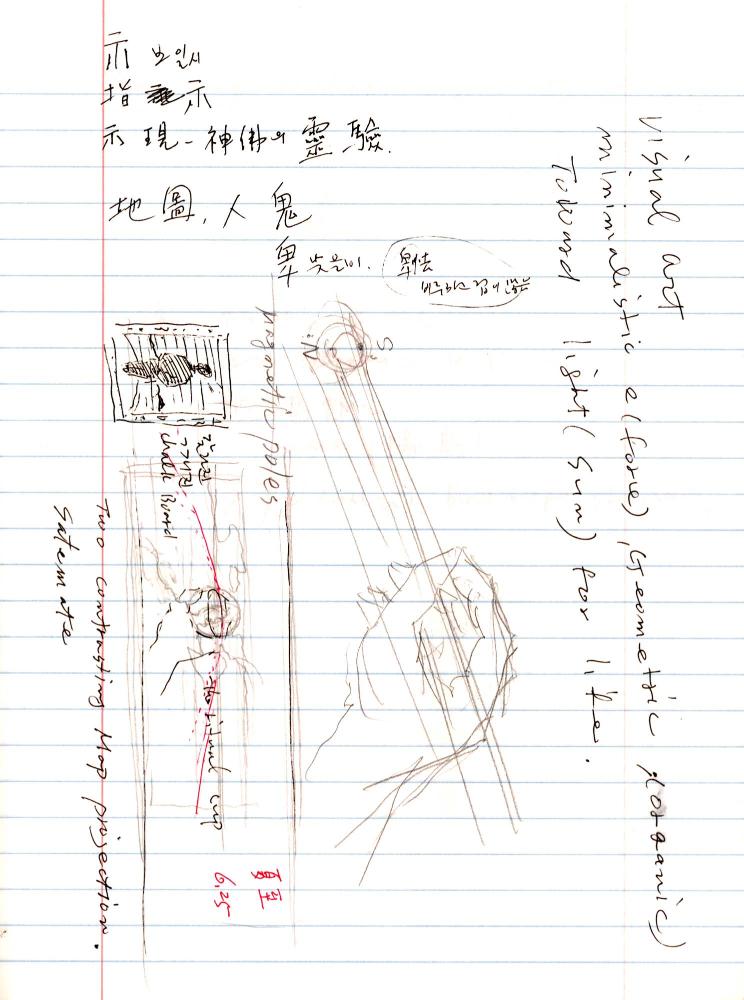 示 보일시
指 示
示現 - 神佛의 靈驗.
地圖, 人 鬼
卑 낮을비.
卑怯
visual art
minimalistic e(fore), Geometric, (organic)
Toward light (Sun) for life.
N
S
magnetic poles
chalk Board
S
N
Two contrasting Map projection.
夏至
6,25